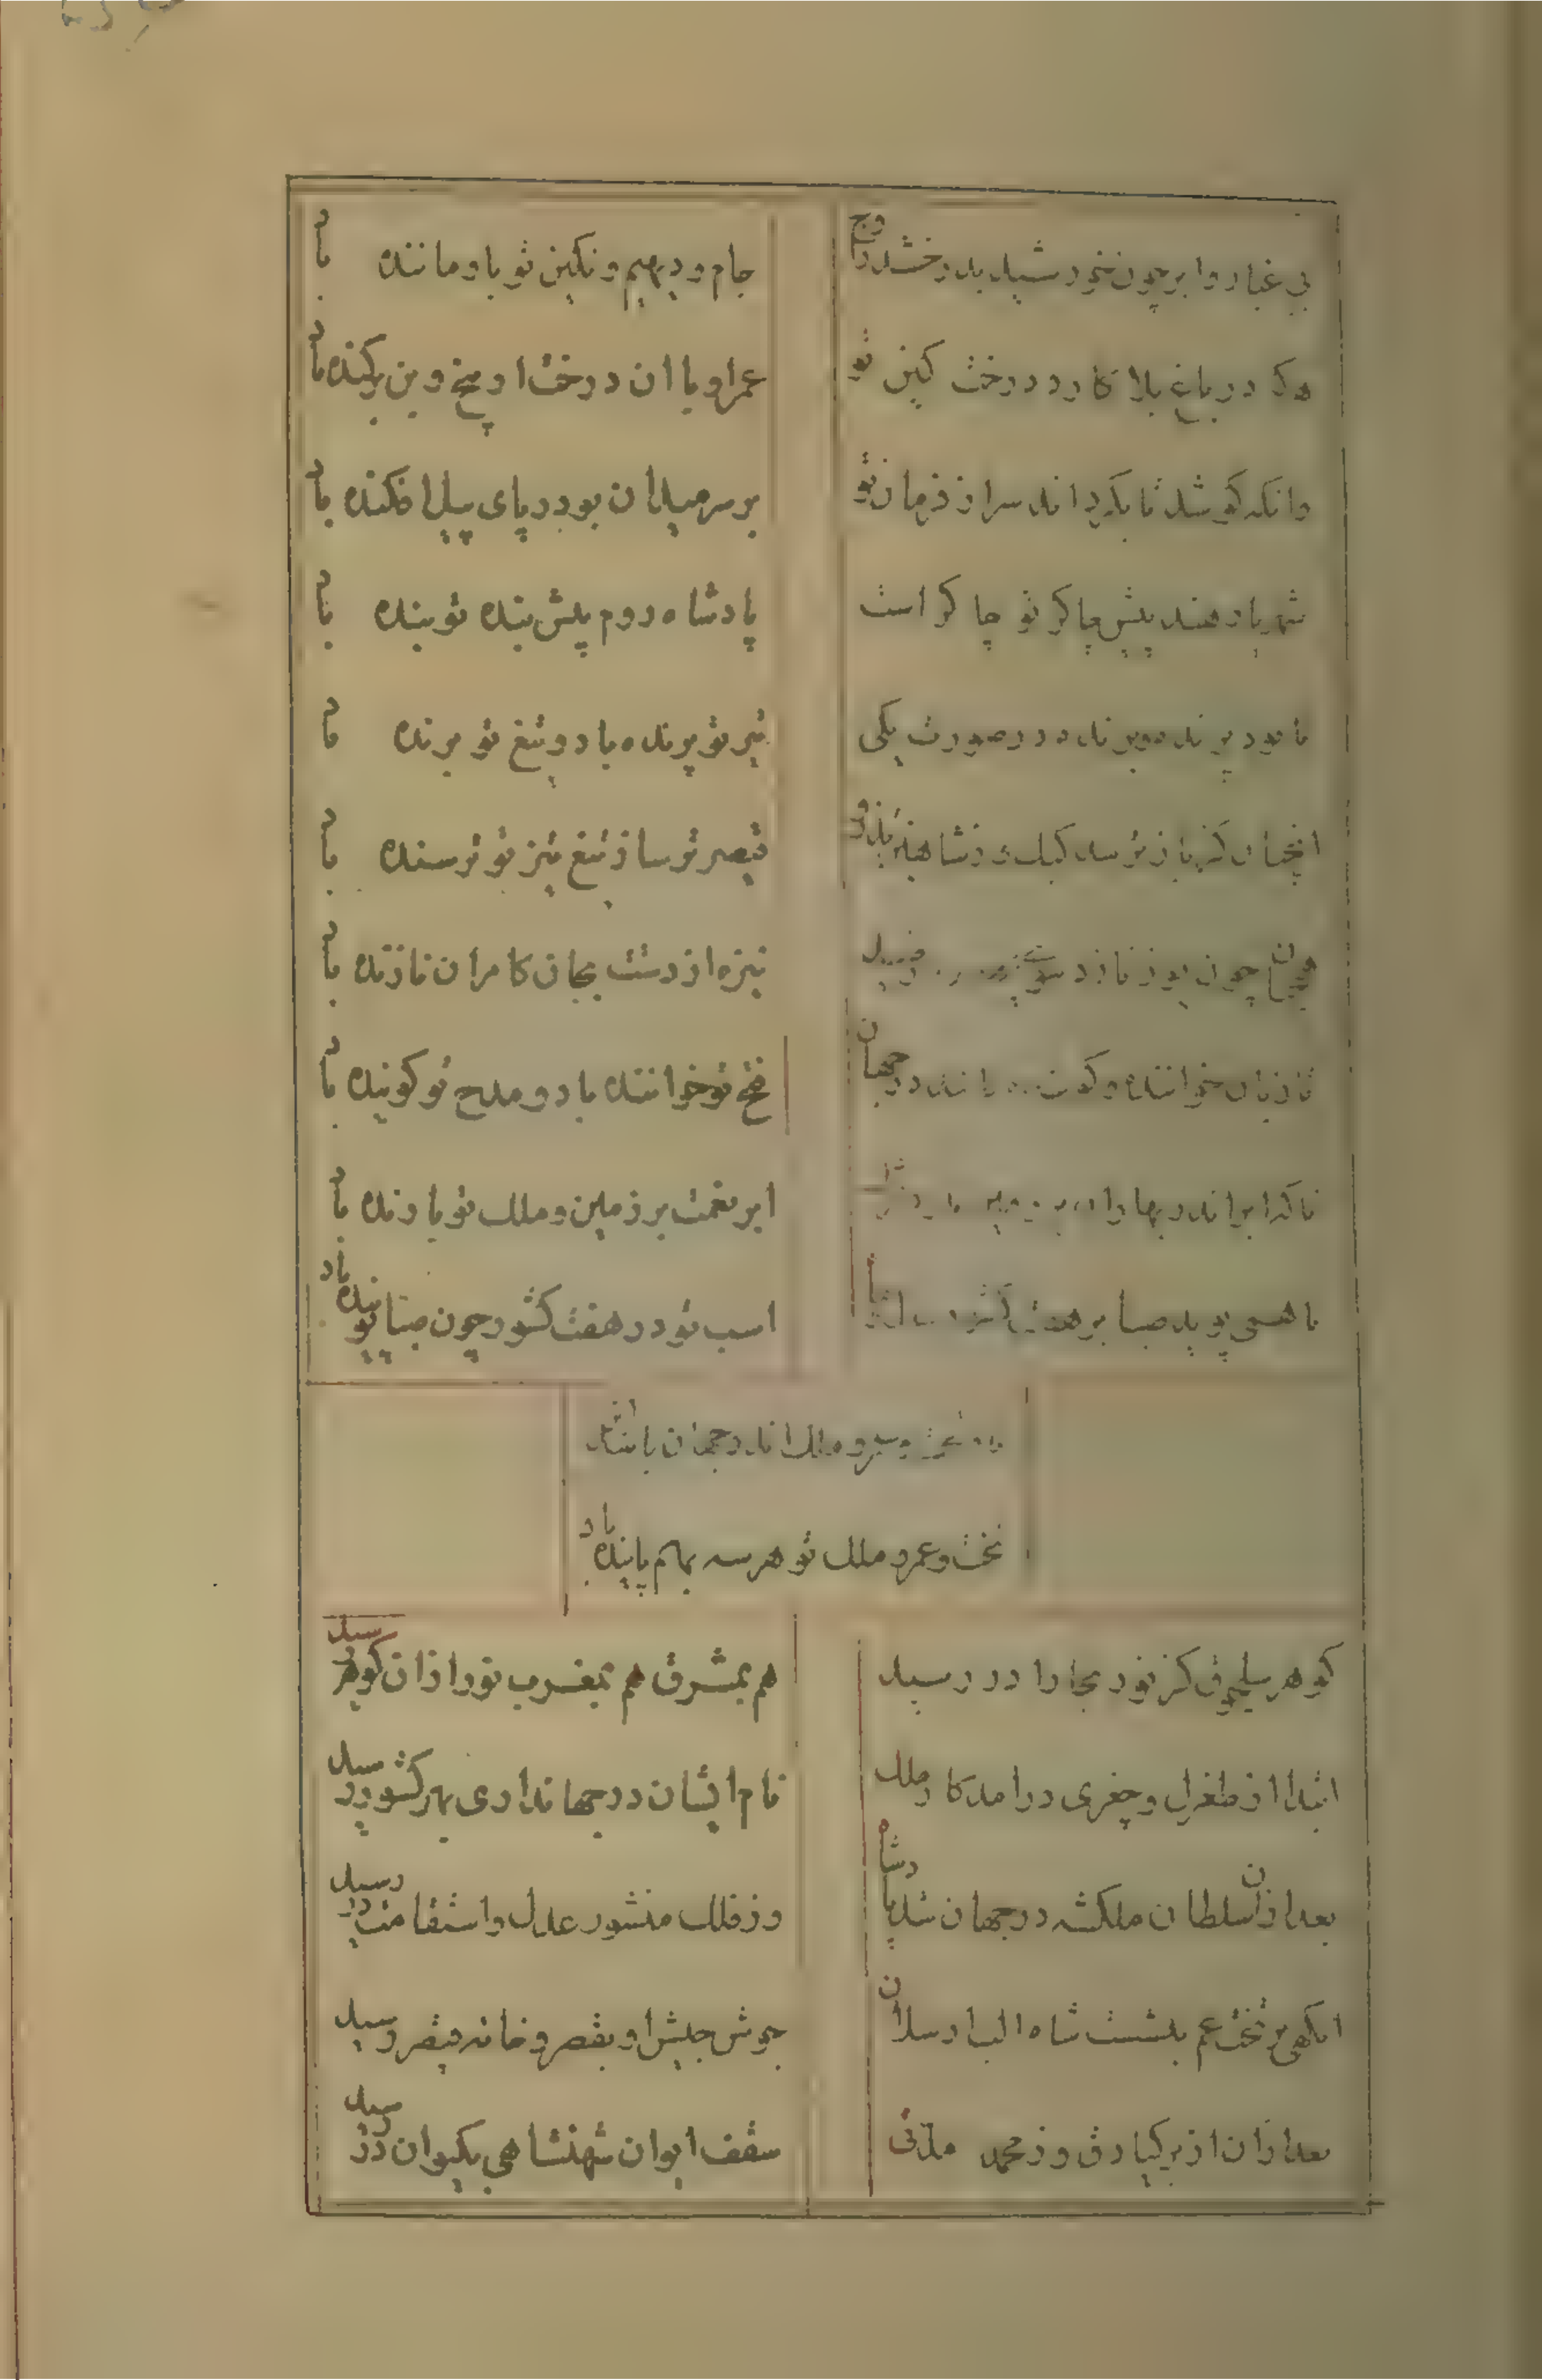 بی غبار و ابر چون خورشید بدرخشد در اوج
جام و دیهیم و نکین تو باو ماننده باد
هرکه در باغ بلا کارد درخت کین تو
عمر او با ان درخت او بیخ و بن برکنده باد
وانکه کوشد تا بکرداند سر از فرمان تو
بر سر میدان بود در پای پیل افکنده باد
شهریار هند پیش چاکر تو چاکر است
پادشاه روم پیش بنده تو بنده باد
تا بود پرنده و برنده در صورت یکی
تیر تو پرنده باد و تیغ تو برنده باد
انچنان کز باز ترسد کبک و ز شاهین تذرو
قیصر ترسا ز تیغ تیز تو ترسنده باد
چون یوز نازد
نیزه از دستت بجان کامران نازنده باد
تا زبان خواننده و در جهان
فتح تو خواننده باد و مدح تو کوینده باد
تا که ابر اندر بهاران
ابر نعمت بر زمین و ملک تو بارنده باد
تا همی پوید صبا بر هفت
اسب تو در هفت کشور چون صبا پوینده باد
و ملک اندر جهان باشد
تخت و عمر و ملک تو هر سه بهم پاینده باد
کوهر سلجوق کز نور بخارا در رسید
هم بمشرق هم بمغرب نور ازان کوهر رسید
ابتدا از طغرل و چغری درامد کار ملک
نام ایشان در جهانداری بهر کشور رسید
بعد ازان سلطان ملکشه در جهان شد پادشاه
وز فلک منشور عدل و استقامت در رسید
انکهی بر تخت عم بنشست شاه الب ارسلان
جوش جیش او بقصر و خانه قیصر رسید
بعد ازان از برکیارق وز محمد مدتی
سقف ایوان شهنشاهی بکیوان در رسید